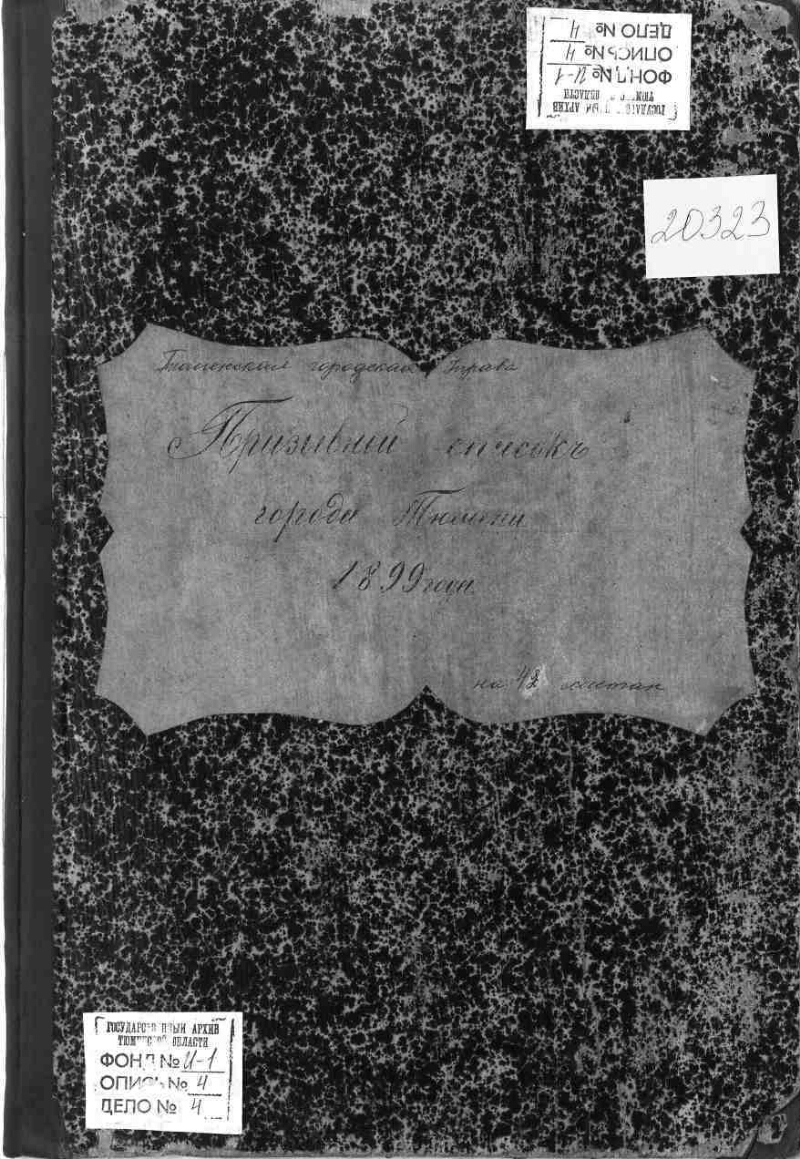 ГОСУДАРСТВЕННЫЙ АРХИВ
ТЮМЕНСКОЙ ОБЛАСТИ
ФОНД № И-1
ОПИСЬ № 4
ДЕЛО № 4
20323
Тюменская городская Управа
Призывной списокъ
города Тюмени
1899 года
на 42 листах
ГОСУДАРСТВЕННЫЙ АРХИВ
ТЮМЕНСКОЙ ОБЛАСТИ
ФОНД № И-1
ОПИСЬ № 4
ДЕЛО № 4